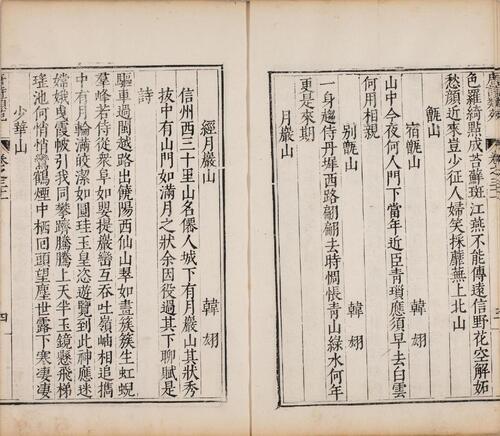 色羅綺點成苔蘚斑江燕不能傳遠信野花空解妬
愁顏近來豈少征人婦笑採蘼蕪上北山
甑山
宿甑山 韓翃
山中今夜何人門下當年近臣青瑣應須早去白雲
何用相親
別甑山 韓翃
一身趨侍丹墀西路翩翩去時惆悵青山綠水何年
更是來期
月巖山
經月巖山 韓翃
信州西三十里山名僊人城下有月巖山其狀秀
拔中有山門如滿月之狀余因役過其下聊賦是
詩
驅車過閩越路出饒陽西仙山翠如畫簇簇生虹蜺
羣峰若侍從衆阜如嬰提巖巒互吞吐嶺岫相追攜
中有月輪滿皎潔如圓珪玉皇恣遊覽到此神應迷
嫦娥曳霞帔引我同攀躋騰騰上天半玉鏡懸飛梯
瑤池何悄悄鸞鶴煙中栖回頭望塵世露下寒凄凄
少華山
四